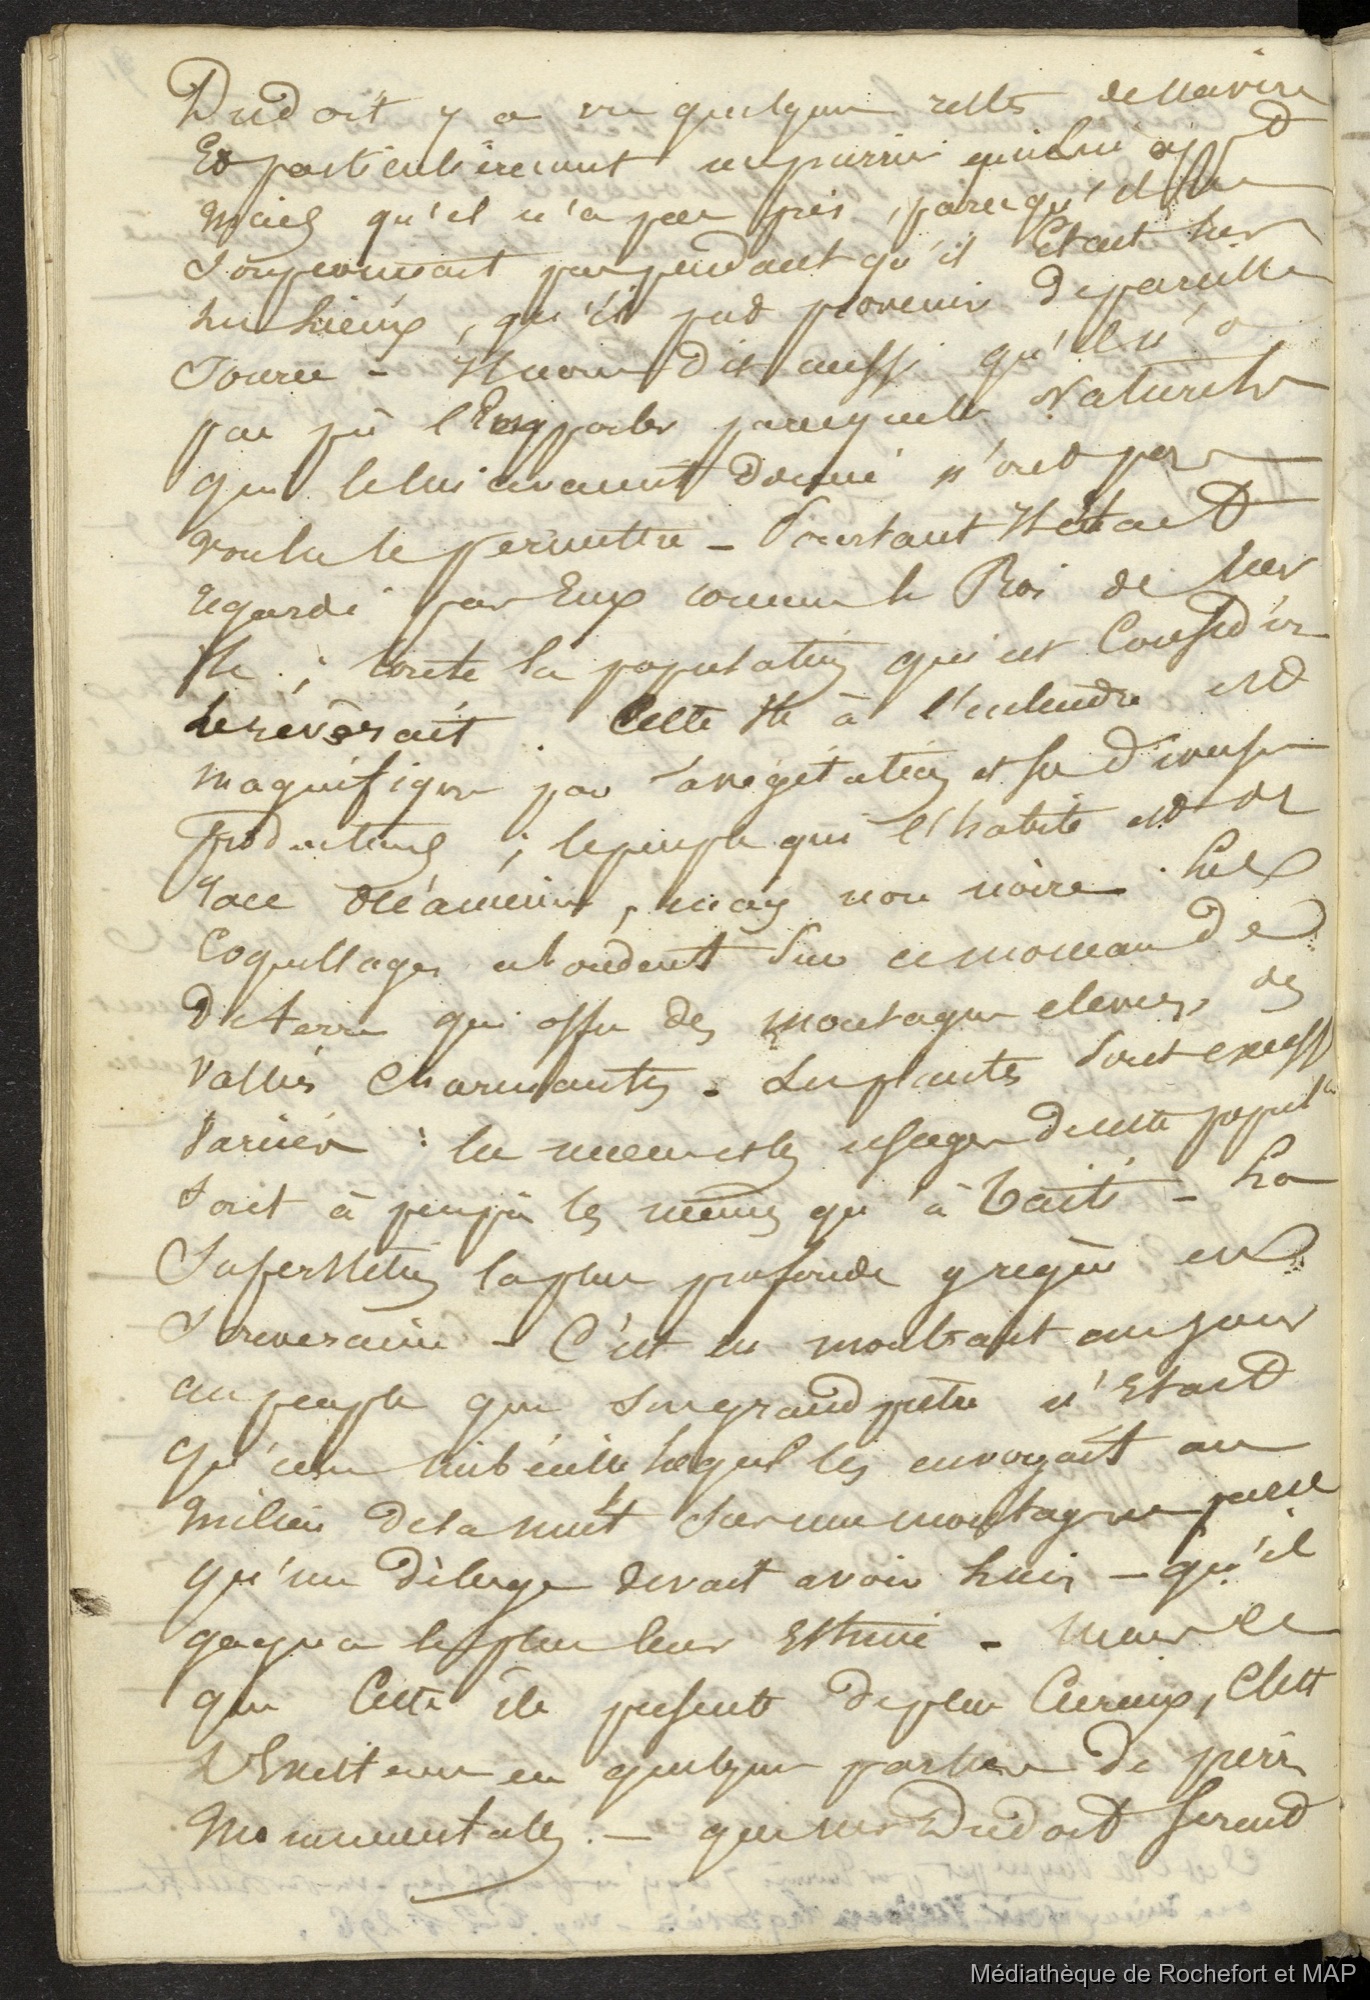 Dudoit y a vu quelques restes de navire
Et particulièrement un pierrier
Mais qu'il n'a pas pris, parcequ'il ne
Soupconnait pas pendant qu'il Etait sur
les Lieux, qu'il put provenir de pareille
Source - Il nous dit aussi qu'il n'a
pas pû l'Emporter parceque les Naturels
qui le lui avaient donné n'ont pas
voulu le permettre - Pourtant Il était
regardé par Eux comme le Roi de leur
Ile ; toute la population qui est Considér
le révérait. Cette Ile à l'entendre est
magnifique par la végétation et ses diverses
productions ; le peuple qui l'habite est de
race océanienne, mais non noire. Les
Coquillages abondent sur ce morceau de
de terre qui offre des montagnes elevées, des
Vallées Charmantes. Les plantes sont excess
Variées : les mœurs et les usages de cette popul
Sont à peu près les mêmes qu'à Taïti - La
Superstition la plus profonde y règne en
Souveraine - C'est en montrant un jour
au peuple que son grand prêtre n'Etait
qu'un imbécille lequel les envoyait au
Milieu de la nuit sur une montagne parce
qu'un déluge devait avoir lieu - qu'il
gagna le plus leur Estime - Mais ce
que Cette ile présente de plus Curieux, C'est
L'Existence en quelques parties de pierres
Monumentales. - que Mr Dudoit
Médiathèque de Rochefort et MAP